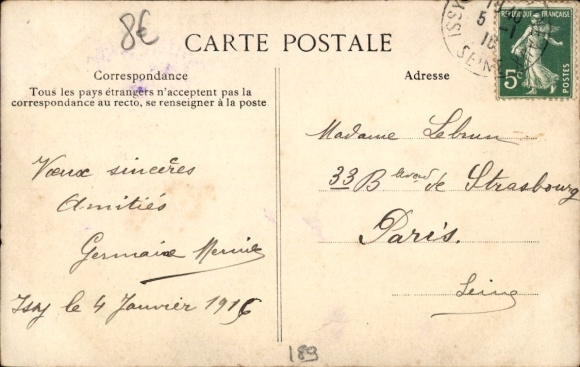 8€
CARTE POSTALE
Correspondance
Tous les pays étrangers n'acceptent pas la
correspondance au recto, se renseigner à la poste
Vœux sincères
Amitiés
Germaine
Issy le 4 Janvier 1916
Adresse
Madame Lebrun
33 Blevard de Strasbourg
Paris.
Seine
REPUBLIQUE FRANÇAISE
5c
POSTES
ISSY
5
1
16
SEINE
189